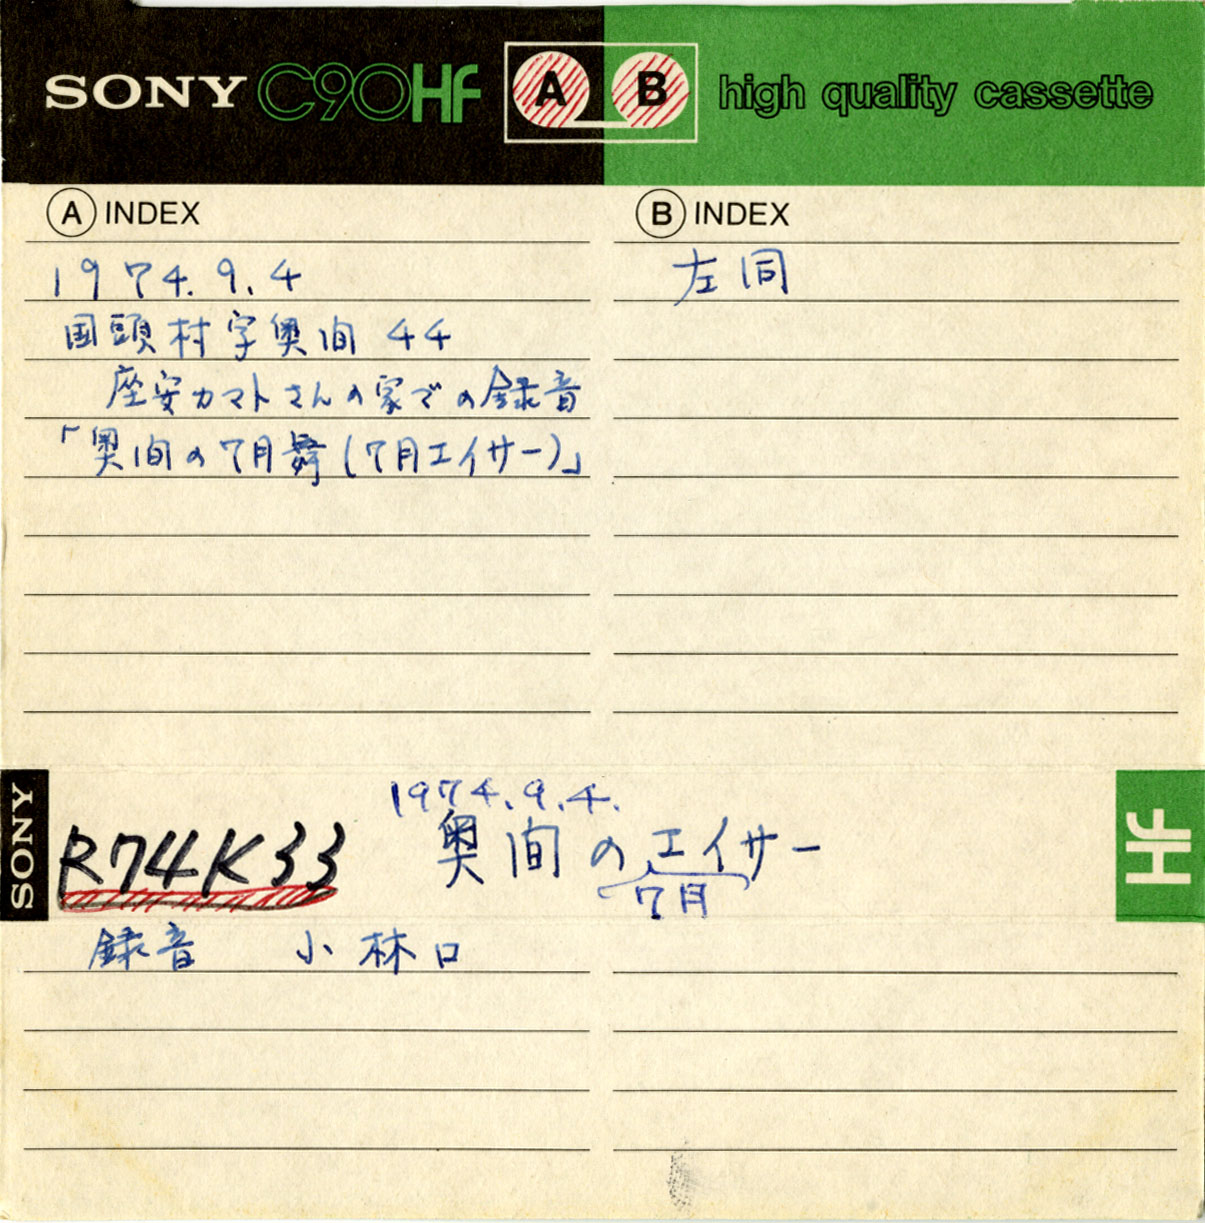 SONY C90HF A B high quality cassette
A INDEX
1974.9.4
国頭村字奥间 44
座安カマトさんの家での録音
「奥间の7月舞(7月エイサー)」
B INDEX
左同
SONY
R74K33
1974.9.4.
奥间のエイサー
7月
HF
録音 小林